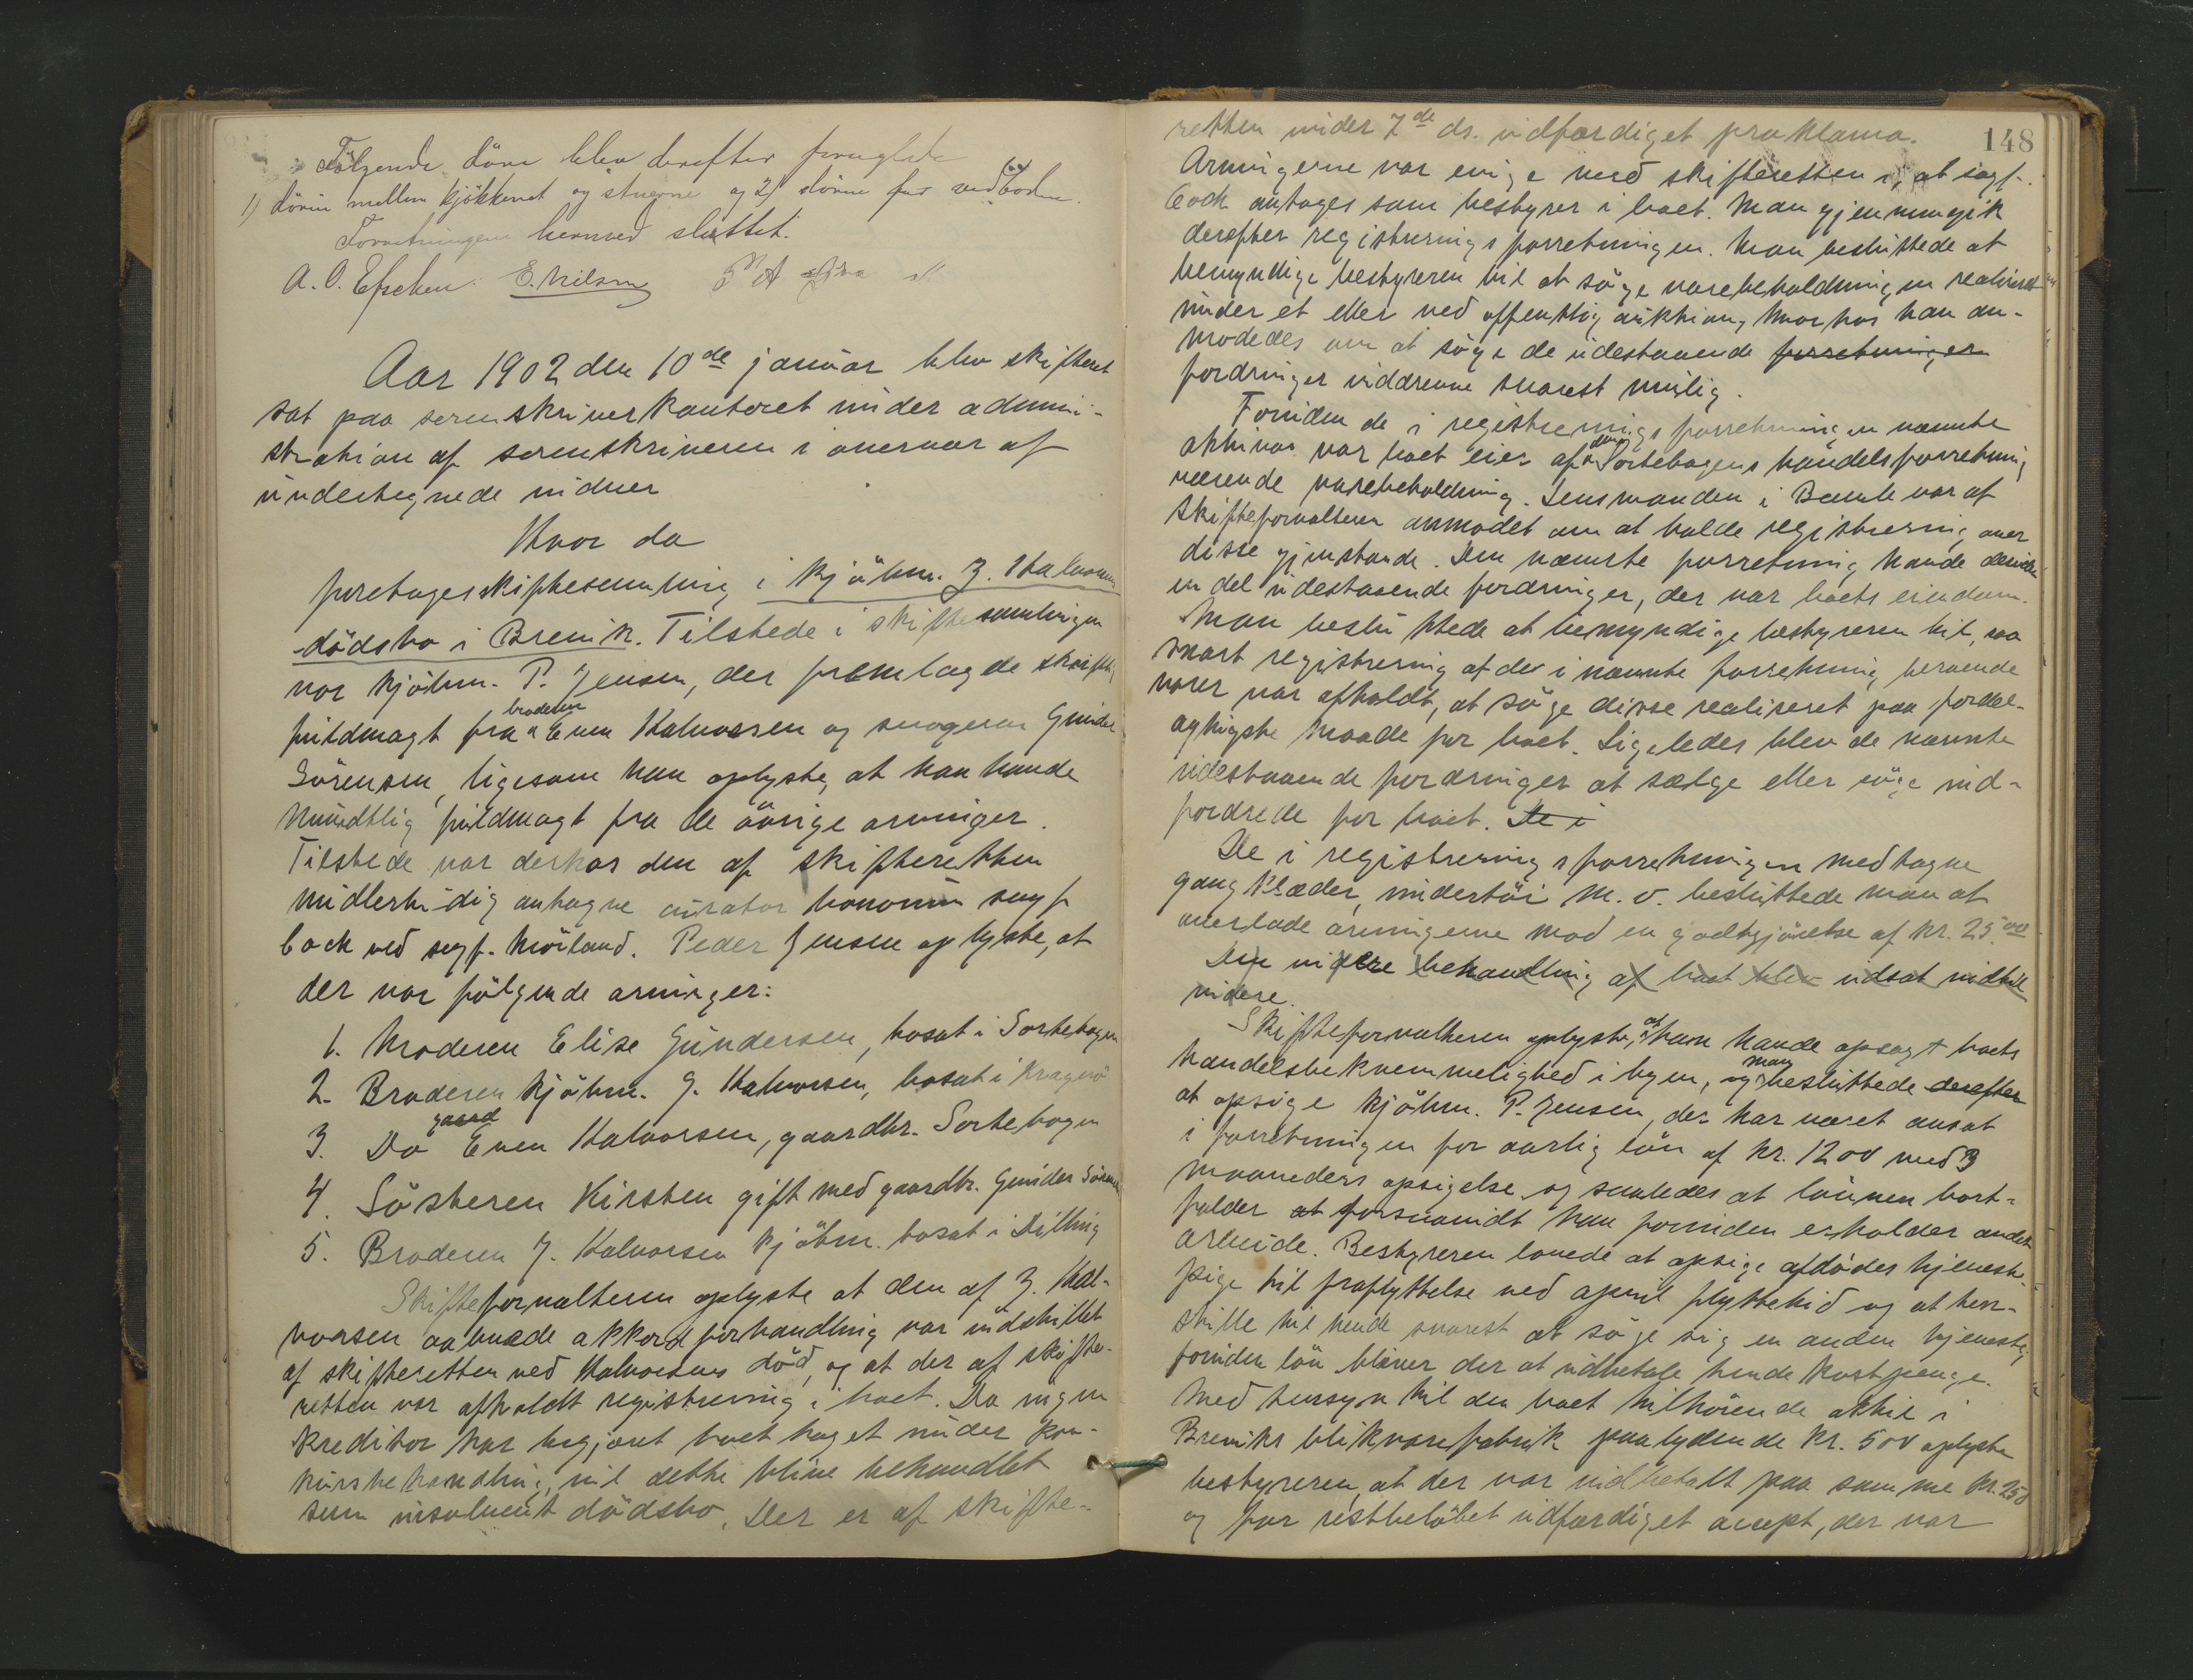 Følgende döre blev derefter forseglede
1) dören mellem kjökkenet og stuerne og 2) dören før vedboden.
Forretningen hermed sluttet.
A. O. Efschen E. Nilsen
Aar 1902 den 10de januar blev skifteret
sat paa sorenskriverkontoret under admini-
stration af sorenskriveren i overvær af
undertegnede vidner
Hvor da
foretoges skiftesamling i kjöbm. Z. Halvorsens
dödsbo i Brevik. Tilstede i skiftesamlingen
var kjöbm. P. Jensen, der fremlagde skriftlig
fuldmagt fra broderen Even Halvorsen og svogeren Gunder
Sörensen, ligesom han oplyste, at han havde
mundtlig fuldmagt fra de övrige arvinger.
Tilstede var derhos den af skifteretten
midlertidig antagne curator bonorum sagf
Cock ved sagf. Mörland. Peder Jensen oplyste, at
der var fölgende arvinger:
1. Moderen Elise Gundersen, bosat i Sortebogen
2. Broderen kjöbm. G. Halvorsen, bosat i Kragerö
3. Do gaard Even Halvorsen, gaardbr. Sortebogen
4. Sösteren Kirsten gift med gaardbr. Gunder Sörensen
5. Broderen J. Halvorsen kjöbm. bosat i Dilling
Skifteforvalteren oplyste at den af Z. Hal-
vorsen aabnede akkordforhandling var indstillet
af skifteretten ved Halvorsens död, og at der af skifte-
retten var afholdt registrering i boet. Da ingen
kreditor har begjæret boet taget under kon-
kursbehandling, vil dette blive behandlet
som insolvent dödsbo. Der er af skifte-
148
retten under 7de ds. udfærdiget proklama.
Arvingerne var enige med skifteretten i, at sagf.
Cock antages som bestyrer i boet. Man gjennemgik
derefter registreringsforretningen. Man besluttede at
bemyndige bestyreren til at söge varebeholdningen realiseret
under et eller ved offentlig auktion, hvorhos han an-
modedes om at söge de udestaaende forretninger
fordringer inddrevne snarest mulig.
Foruden de i registreringsforretningen nævnte
aktiva var boet eier af den i Sortebogens handelsforretning
værende varebeholdning. Lensmanden i Bamle var af
skifteforvalteren anmodet om at holde registrering over
disse gjenstande. Den nævnte forretning havde desuden
en del udestaaende fordringer, der var boets eiendom.
Man besluttede at bemyndige bestyreren til, saa
snart registrering af de i nævnte forretning beroende
varer var afholdt, at söge disse realiseret paa fordel-
agtigste maade for boet. Ligeledes blev de nævnte
udestaaende fordringer at sælge eller söge ind-
fordrede for boet. De i
De i registreringsforretningen medtagne
gangklæder, undertöi m. v. besluttede man at
overlade arvingerne mod en godtgjörelse af kr. 25.00
Den videre behandling af boet blev udsat indtil
videre.
Skifteforvalteren oplyste, at han havde opsagt boets
handelsbekvemmelighed i byen, og man besluttede derefter
at opsige kjöbm. P. Jensen, der har været ansat
i forretningen for aarlig lön af kr. 1200 med 3
maaneders opsigelse og saaledes at lönnen bort-
falder at forsaavidt han forinden erholder andet
arbeide. Bestyreren lovede at opsige afdödes tjeneste-
pige til fraflyttelse ved april flyttetid og at hen-
stille til hende snarest at söge sig en anden tjeneste;
foruden lön bliver der at udbetale hende kostpenge.
Med hensyn til den boet tilhörende aktie i
Breviks blikvarefabrik paalydende kr. 500 oplyste
bestyreren, at der var indbetalt paa samme kr. 250
og for restbelöbet udfærdiget accept, der var